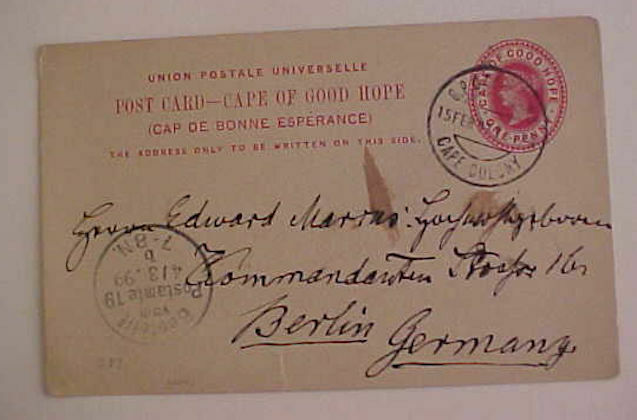 UNION POSTALE UNIVERSELLE
POST CARD—CAPE OF GOOD HOPE
(CAP DE BONNE ESPÉRANCE)
THE ADDRESS ONLY TO BE WRITTEN ON THIS SIDE.
CAPE OF GOOD HOPE
ONE PENNY
G.P.O.
15 FEB
CAPE COLONY
Herrn Edward Marcus. Hochwohlgeboren
Kommandanten Strasse 16
Berlin Germany
Bestellt
vom
Postamte 19
4/3.99
7-8 N.